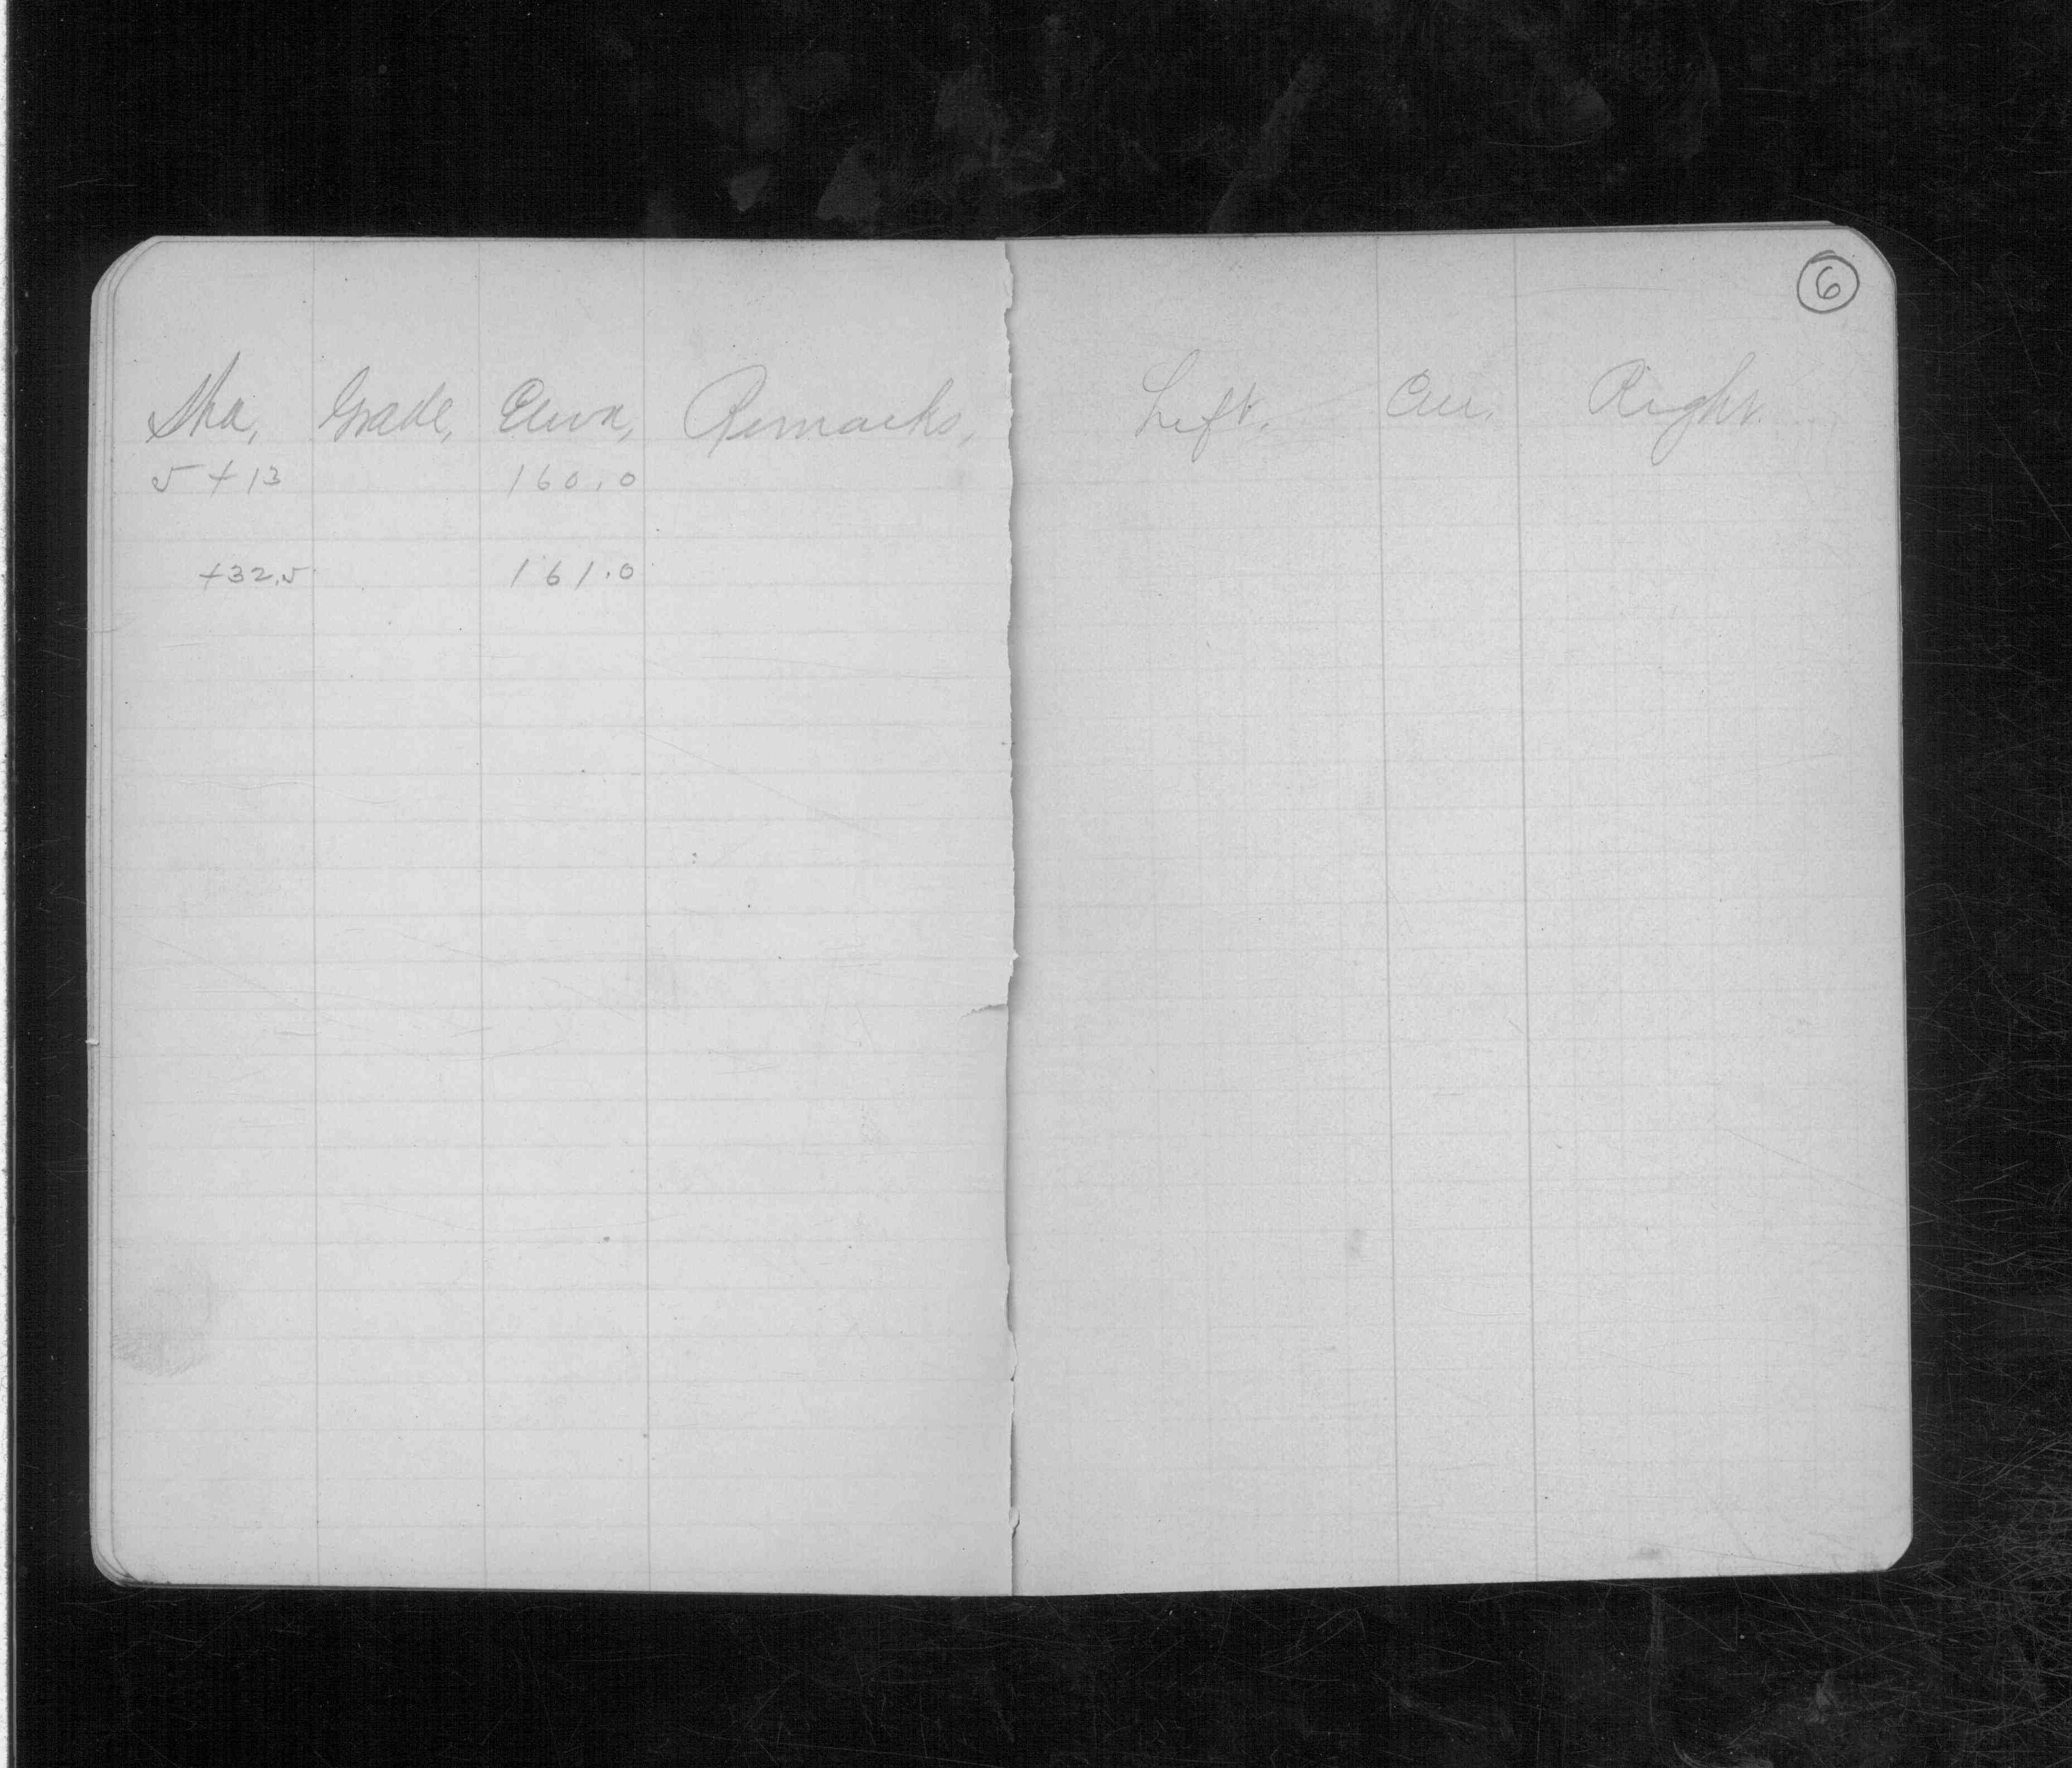 6
Sta, Grade, Eleva, Remarks, Left, Cen. Right.
5+13 160.0
+32.5 161.0